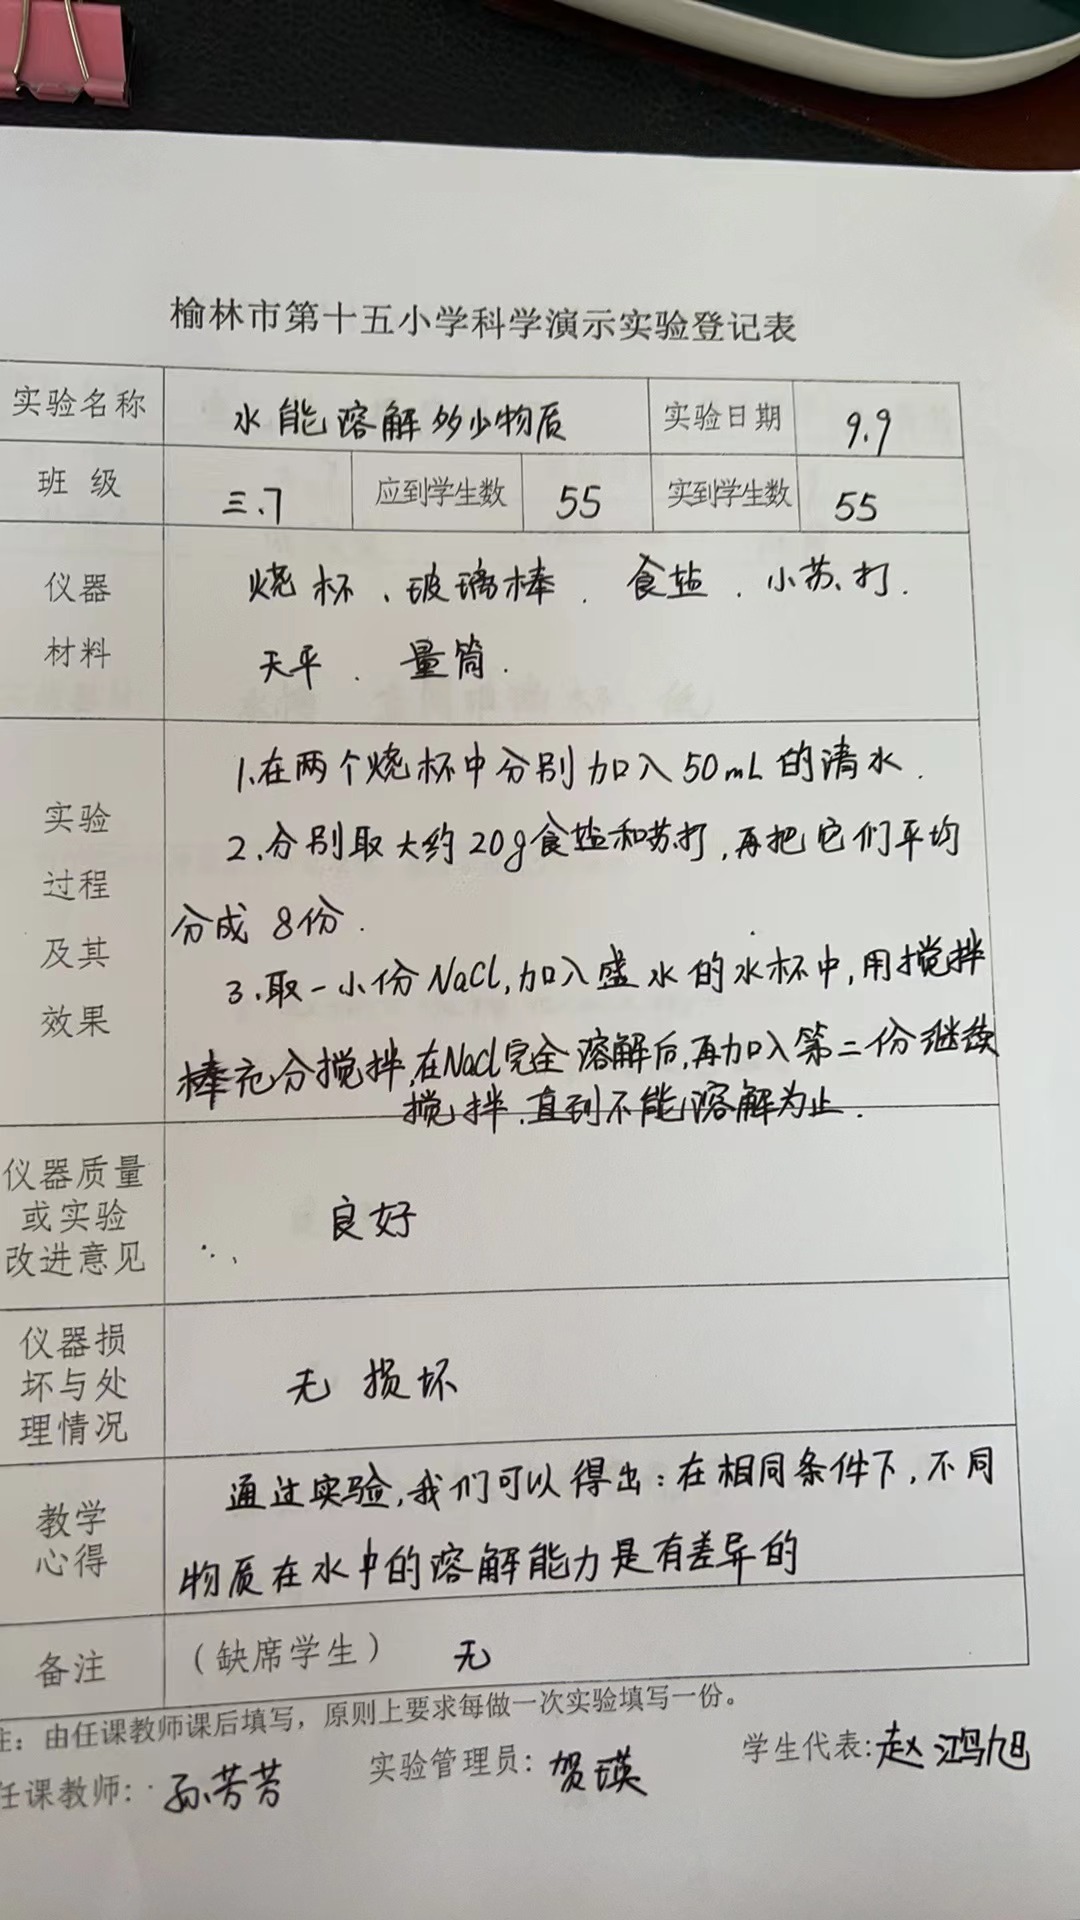 榆林市第十五小学科学演示实验登记表
实验名称 水能溶解多少物质 实验日期 9.9
班 级 三.7 应到学生数 55 实到学生数 55
仪器 烧杯、玻璃棒. 食盐. 小苏打.
材料 天平. 量筒.
1.在两个烧杯中分别加入50mL的清水.
实验
2.分别取大约20g食盐和苏打,再把它们平均
过程
分成8份.
及其
3.取一小份NaCl,加入盛水的水杯中,用搅拌
效果
棒充分搅拌,在NaCl完全溶解后,再加入第二份继续
搅拌.直到不能溶解为止.
仪器质量
或实验 良好
改进意见
仪器损
坏与处 无损坏
理情况
通过实验,我们可以得出:在相同条件下,不同
教学
心得
物质在水中的溶解能力是有差异的
备注 (缺席学生) 无
注:由任课教师课后填写,原则上要求每做一次实验填写一份。
任课教师: 孙芳芳 实验管理员: 贺瑛 学生代表:赵鸿旭